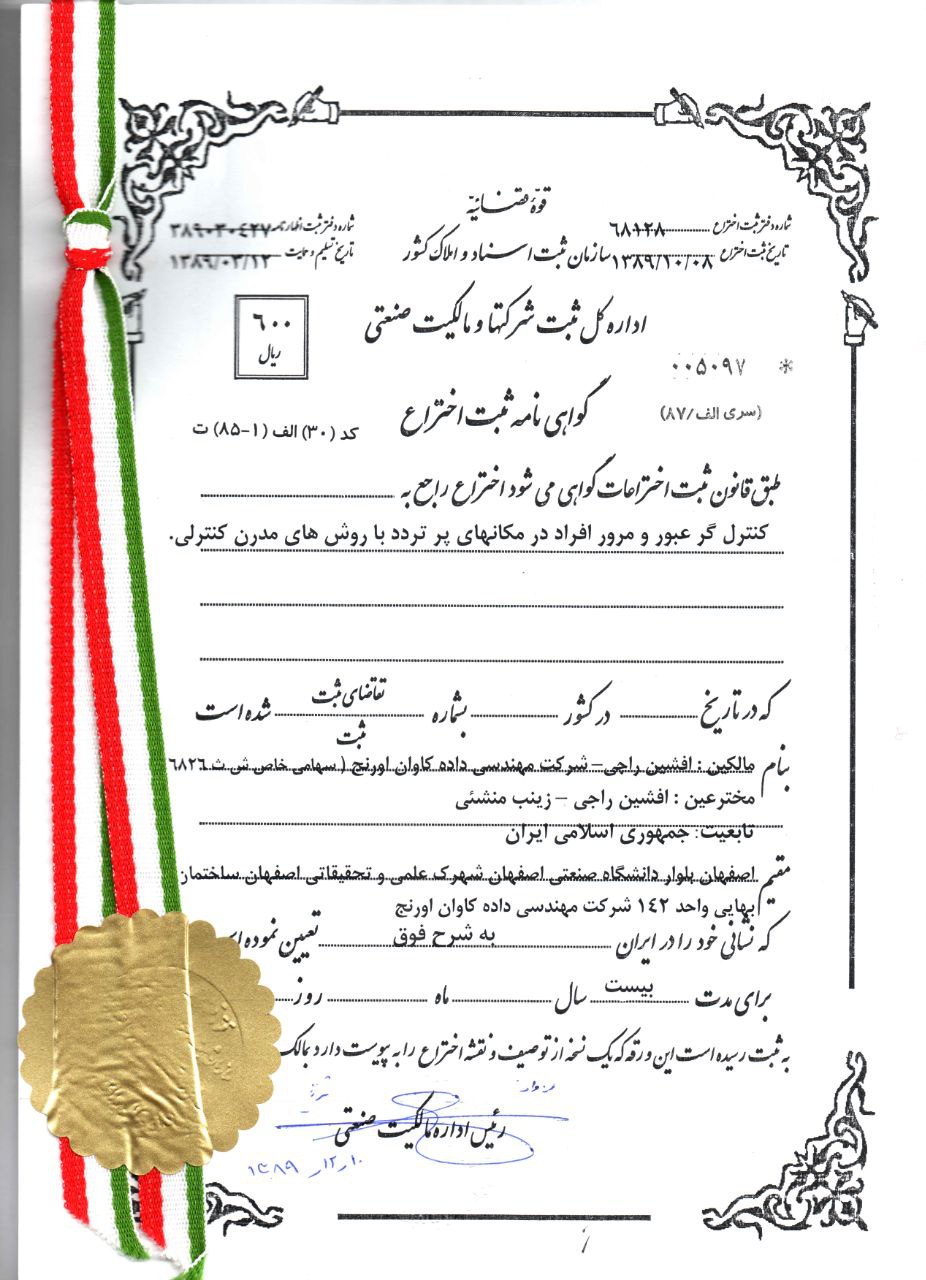 قوّهٔ قضائیّه
شماره دفتر ثبت اختراع ۶۸۱۲۸
شماره دفتر ثبت اظهارنامه ۳۸۹۰۳۰۴۲۷
سازمان ثبت اسناد و املاک کشور
تاریخ ثبت اختراع ۱۳۸۹/۱۰/۰۸
تاریخ تسلیم و حمایت ۱۳۸۹/۰۳/۱۲
اداره کل ثبت شرکتها و مالکیت صنعتی
۶۰۰
ریال
* ۰۰۵۰۹۷
(سری الف/۸۷)
گواهی نامه ثبت اختراع
کد (۳۰) الف (۱-۸۵) ت
طبق قانون ثبت اختراعات گواهی می شود اختراع راجع به
کنترل گر عبور و مرور افراد در مکانهای پر تردد با روش های مدرن کنترلی.
که در تاریخ در کشور بشماره تقاضای ثبت شده است
ثبت
بنام مالکین : افشین راجی– شرکت مهندسی داده کاوان اورنج ( سهامی خاص ش ث ۶۸۲۶
مخترعین : افشین راجی – زینب منشئی
تابعیت: جمهوری اسلامی ایران
مقیم اصفهان بلوار دانشگاه صنعتی اصفهان شهرک علمی و تحقیقاتی اصفهان ساختمان
بهایی واحد ۱۴۲ شرکت مهندسی داده کاوان اورنج
که نشانی خود را در ایران به شرح فوق تعیین نموده
برای مدت بیست سال ماه روز
به ثبت رسیده است این ورقه که یک نسخه از توصیف و نقشه اختراع را به پیوست دارد بمالک
رئیس اداره مالکیت صنعتی